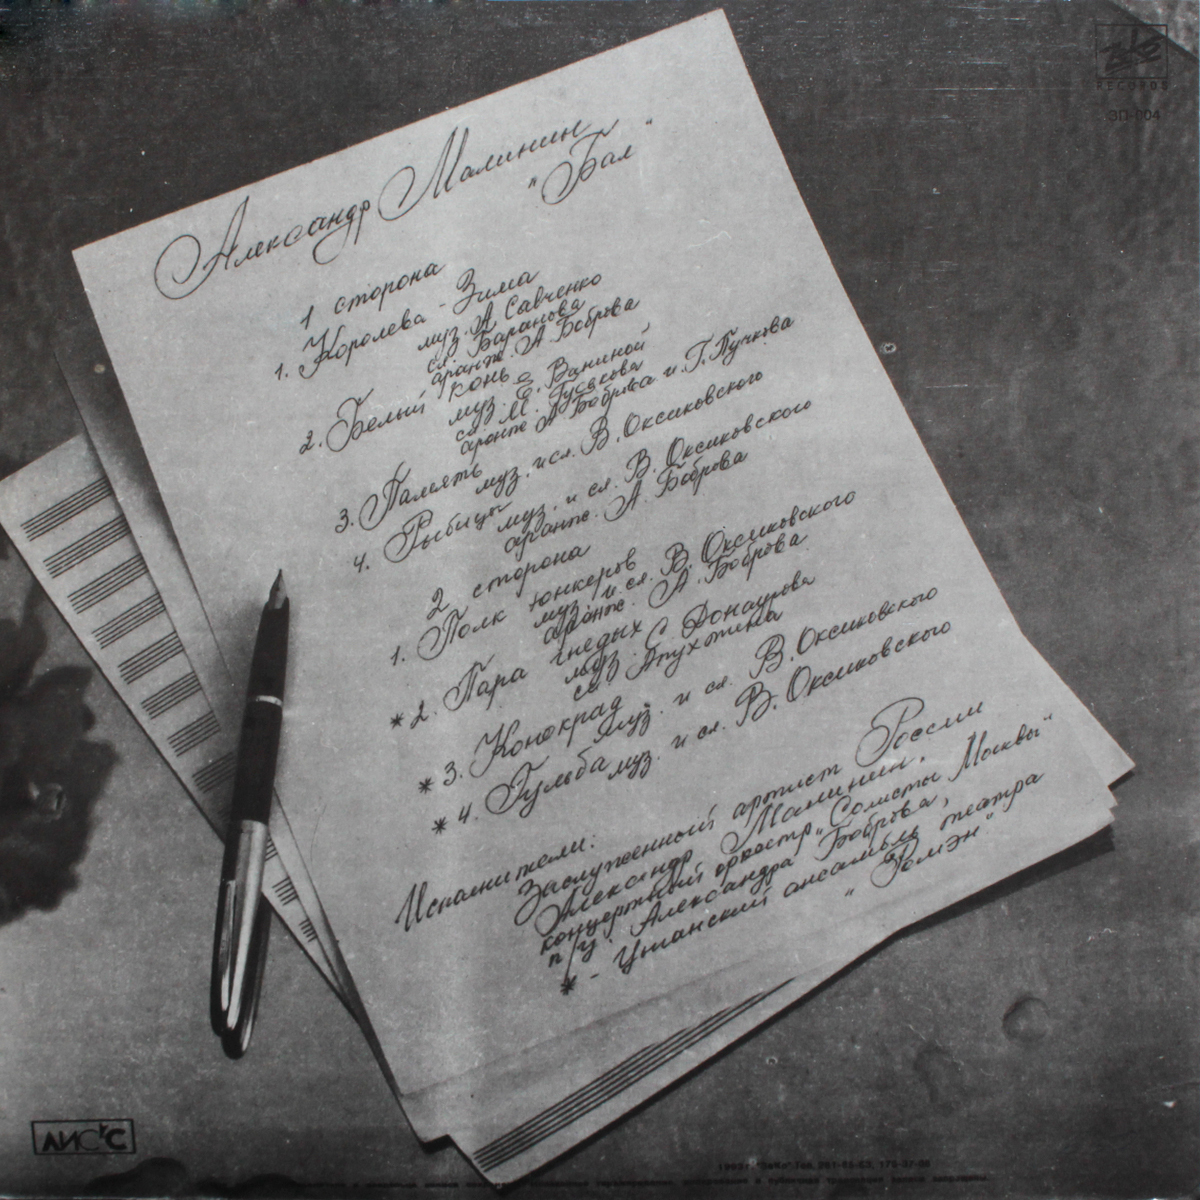 ZeKo
RECORDS
ЭП-004
Александр Малинин
"Бал"
1 сторона
1. Королева-Зима
муз. А Савченко
сл. Баранова
аранж. А. Боброва
2. Белый конь
муз. Е. Ваниной
сл. М. Гуськова
аранж А Боброва и Г. Пучкова
3. Память
муз. и сл. В. Оксиковского
4. Рыбицы
муз. и сл. В. Оксиковского
аранж. А. Боброва
2 сторона
1. Полк юнкеров
муз. и сл. В. Оксиковского
аранж. А. Боброва
* 2. Пара гнедых
муз. С Донаурова
сл. Апухтина
* 3. Конокрад
муз. и сл. В. Оксиковского
* 4. Гульба
муз. и сл. В. Оксиковского
Исполнители:
Заслуженный артист России
Александр Малинин,
концертный оркестр „Солисты Москвы"
п/у Александра Боброва,
* - Цыганский ансамбль театра
„Ромэн"
ЛИС'С